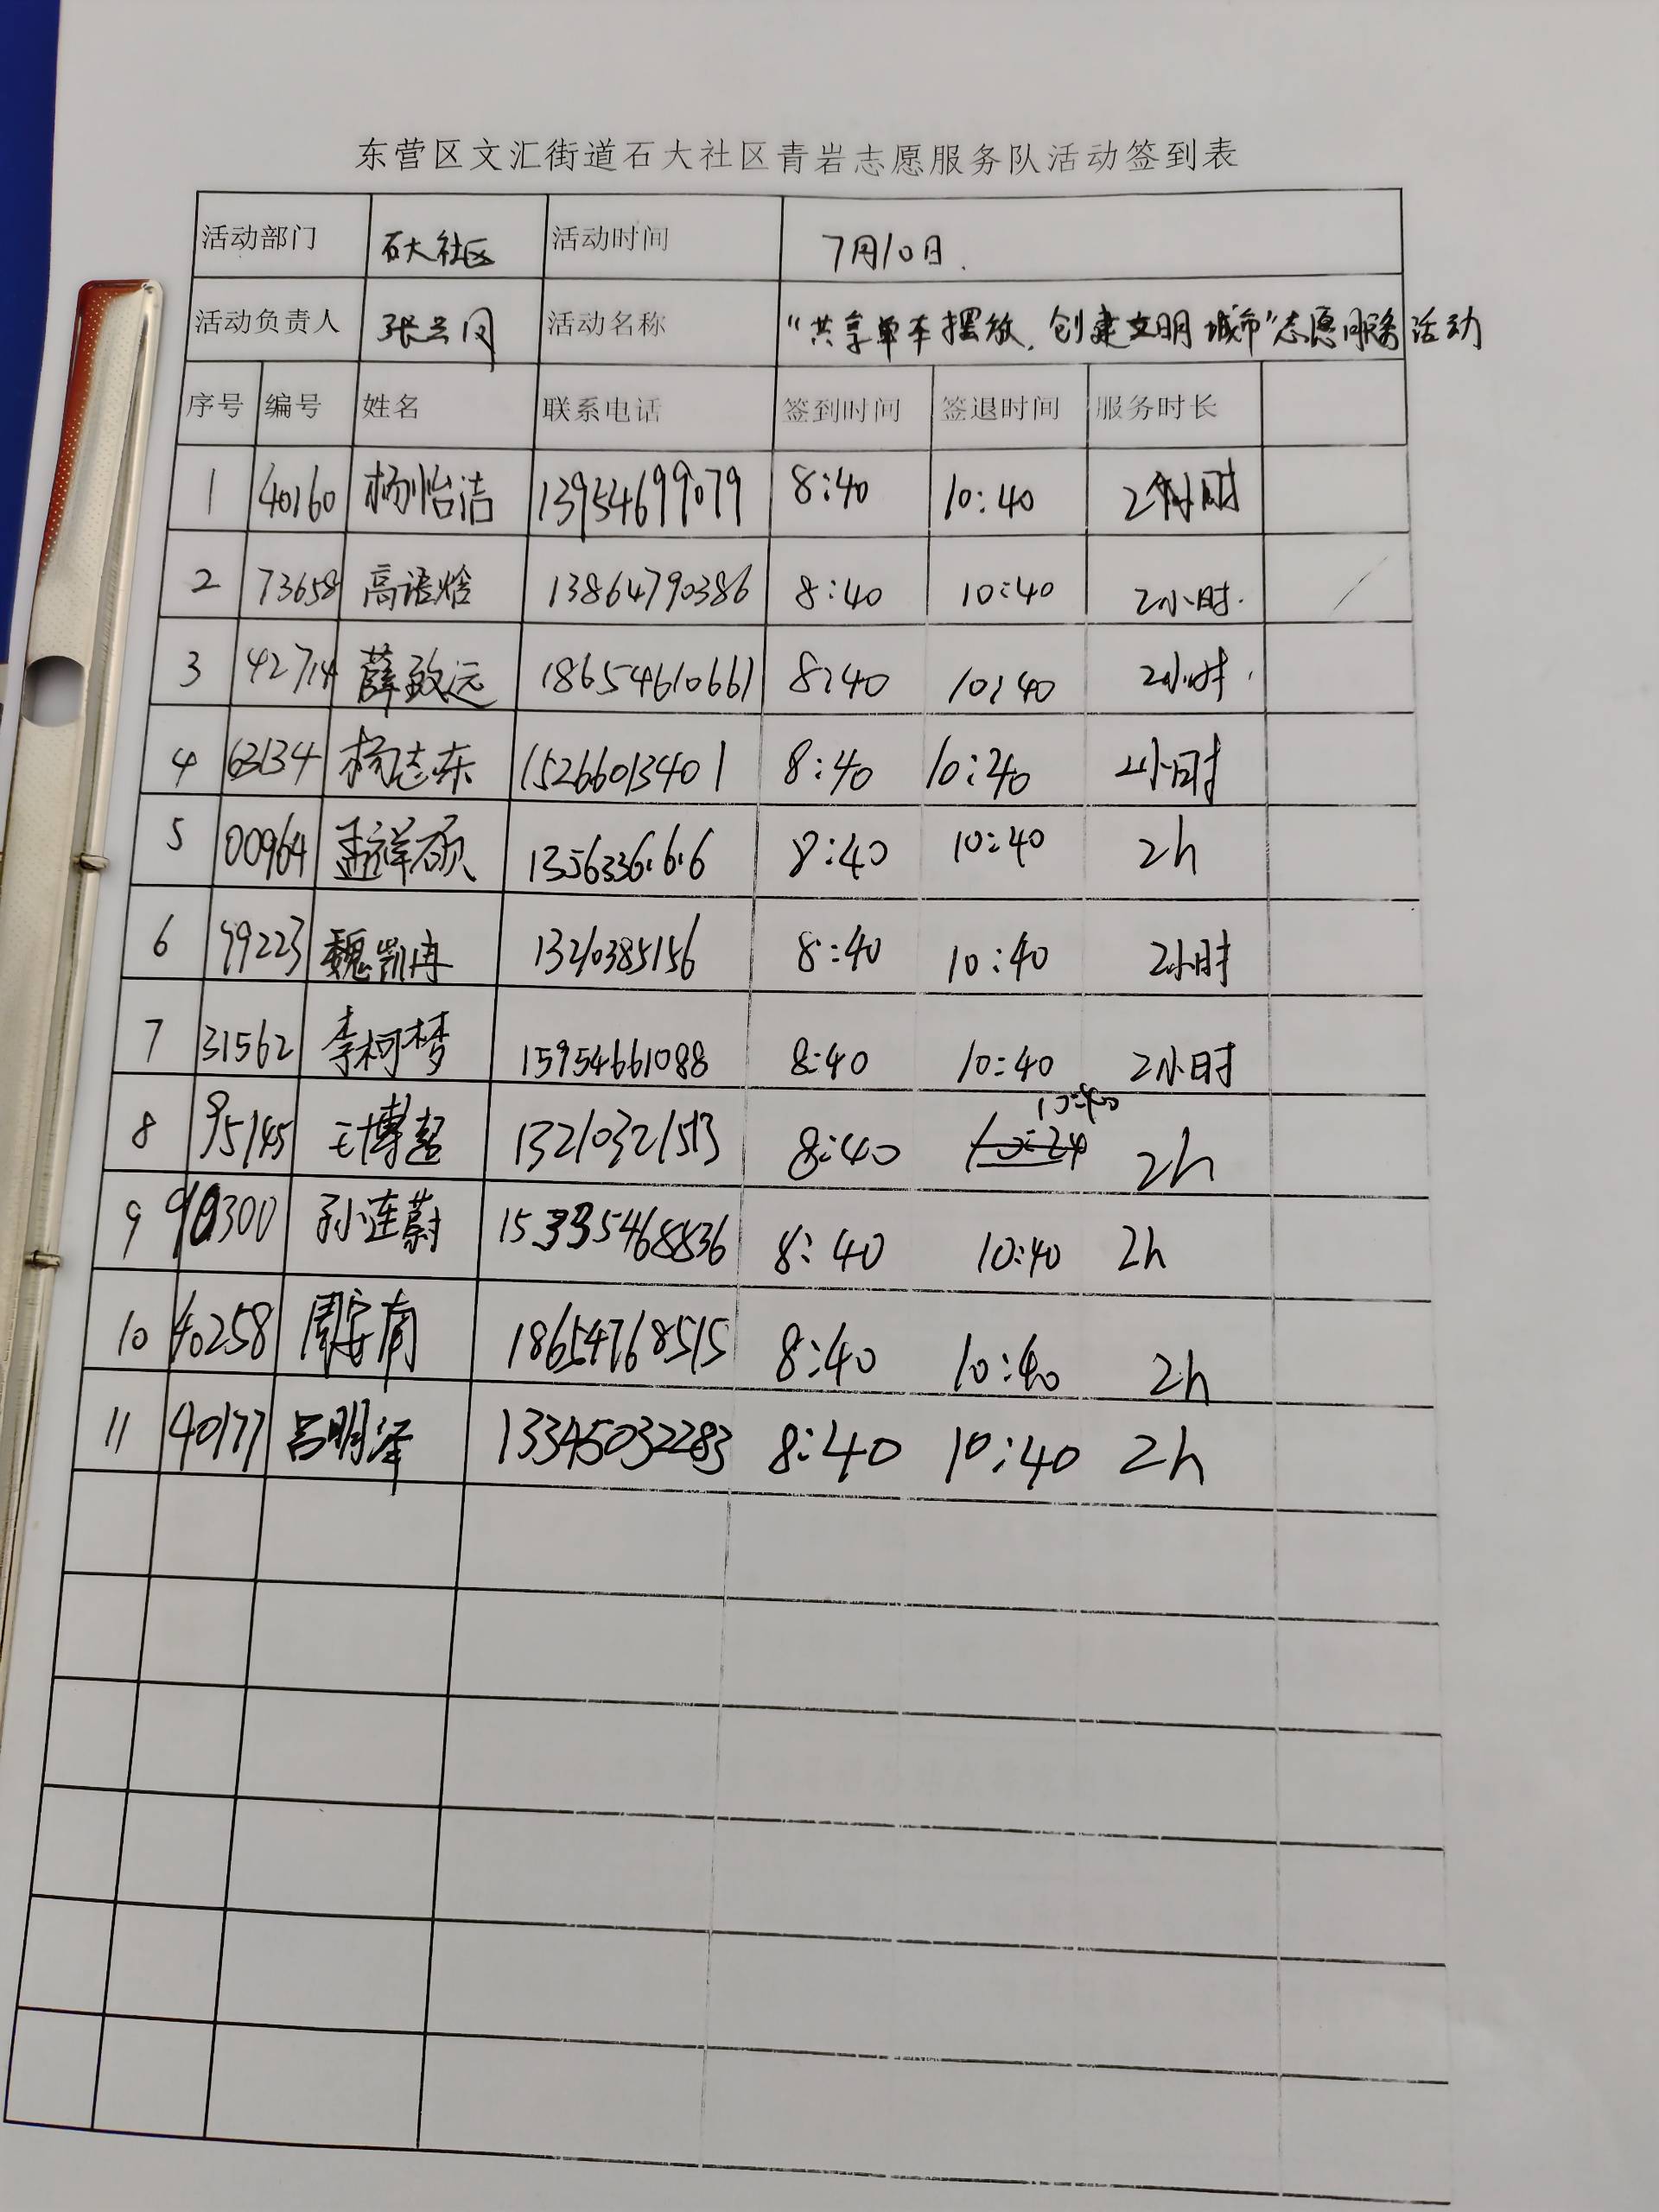 东营区文汇街道石大社区青岩志愿服务队活动签到表
活动部门 石大社区 活动时间 7月10日.
活动负责人 张兰凤 活动名称 "共享单车摆放、创建文明城市"志愿服务活动
序号 编号 姓名 联系电话 签到时间 签退时间 服务时长
1 40160 杨怡洁 13954699079 8:40 10:40 2小时
2 73658 高语焓 13864790386 8:40 10:40 2小时.
3 42714 薛致远 18654610661 8:40 10:40 2小时.
4 63134 杨志东 15266013401 8:40 10:40 2小时
5 00964 孟祥硕 8:40 10:40 2h
6 99223 魏凯冉 8:40 10:40 2小时
7 31562 李柯梦 15954661088 8:40 10:40 2小时
8 95145 王博超 13210321513 8:40 10:40 2h
9 孙连蔚 15335468836 8:40 10:40 2h
10 40258 周安南 18654768515 8:40 10:40 2h
11 40177 吕明泽 13345032283 8:40 10:40 2h